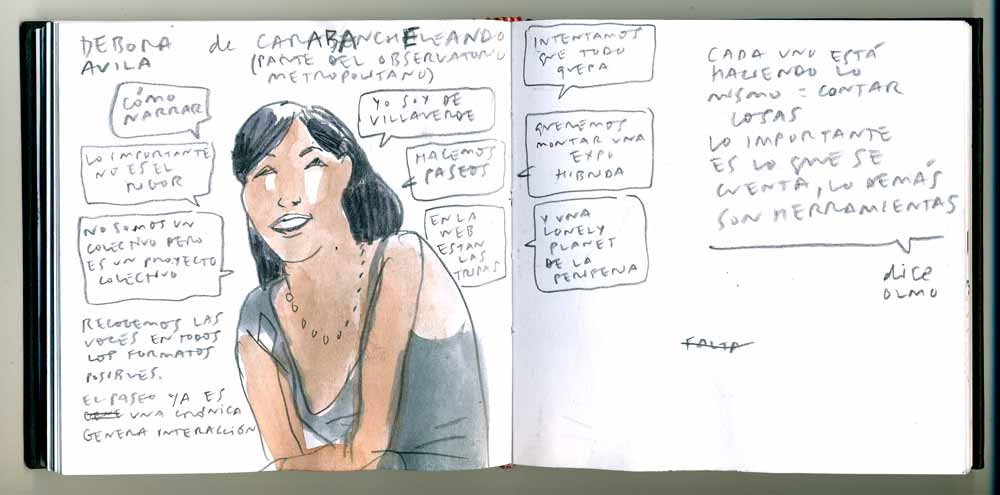 DEBORA de CARABANCHELEANDO
AVILA
(PARTE DEL OBSERVATORIO
METROPOLITANO)
CÓMO
NARRAR
LO IMPORTANTE
NO ES EL
RIGOR
NO SOMOS UN
COLECTIVO PERO
ES UN PROYECTO
COLECTIVO
RECOGEMOS LAS
VOCES EN TODOS
LOS FORMATOS
POSIBLES.
EL PASEO YA ES
UNA CRÓNICA
GENERA INTERACCIÓN
YO SOY DE
VILLAVERDE
HACEMOS
PASEOS
EN LA
WEB
ESTAN
LAS
TRIPAS
INTENTAMOS
QUE TODO
QUEPA
QUEREMOS
MONTAR UNA
EXPO
HIBRIDA
Y UNA
LONELY
PLANET
DE LA
PERIFERIA
CADA UNO ESTÁ
HACIENDO LO
MISMO = CONTAR
COSAS
LO IMPORTANTE
ES LO QUE SE
CUENTA, LO DEMÁS
SON HERRAMIENTAS
dice
OLMO
FALTA